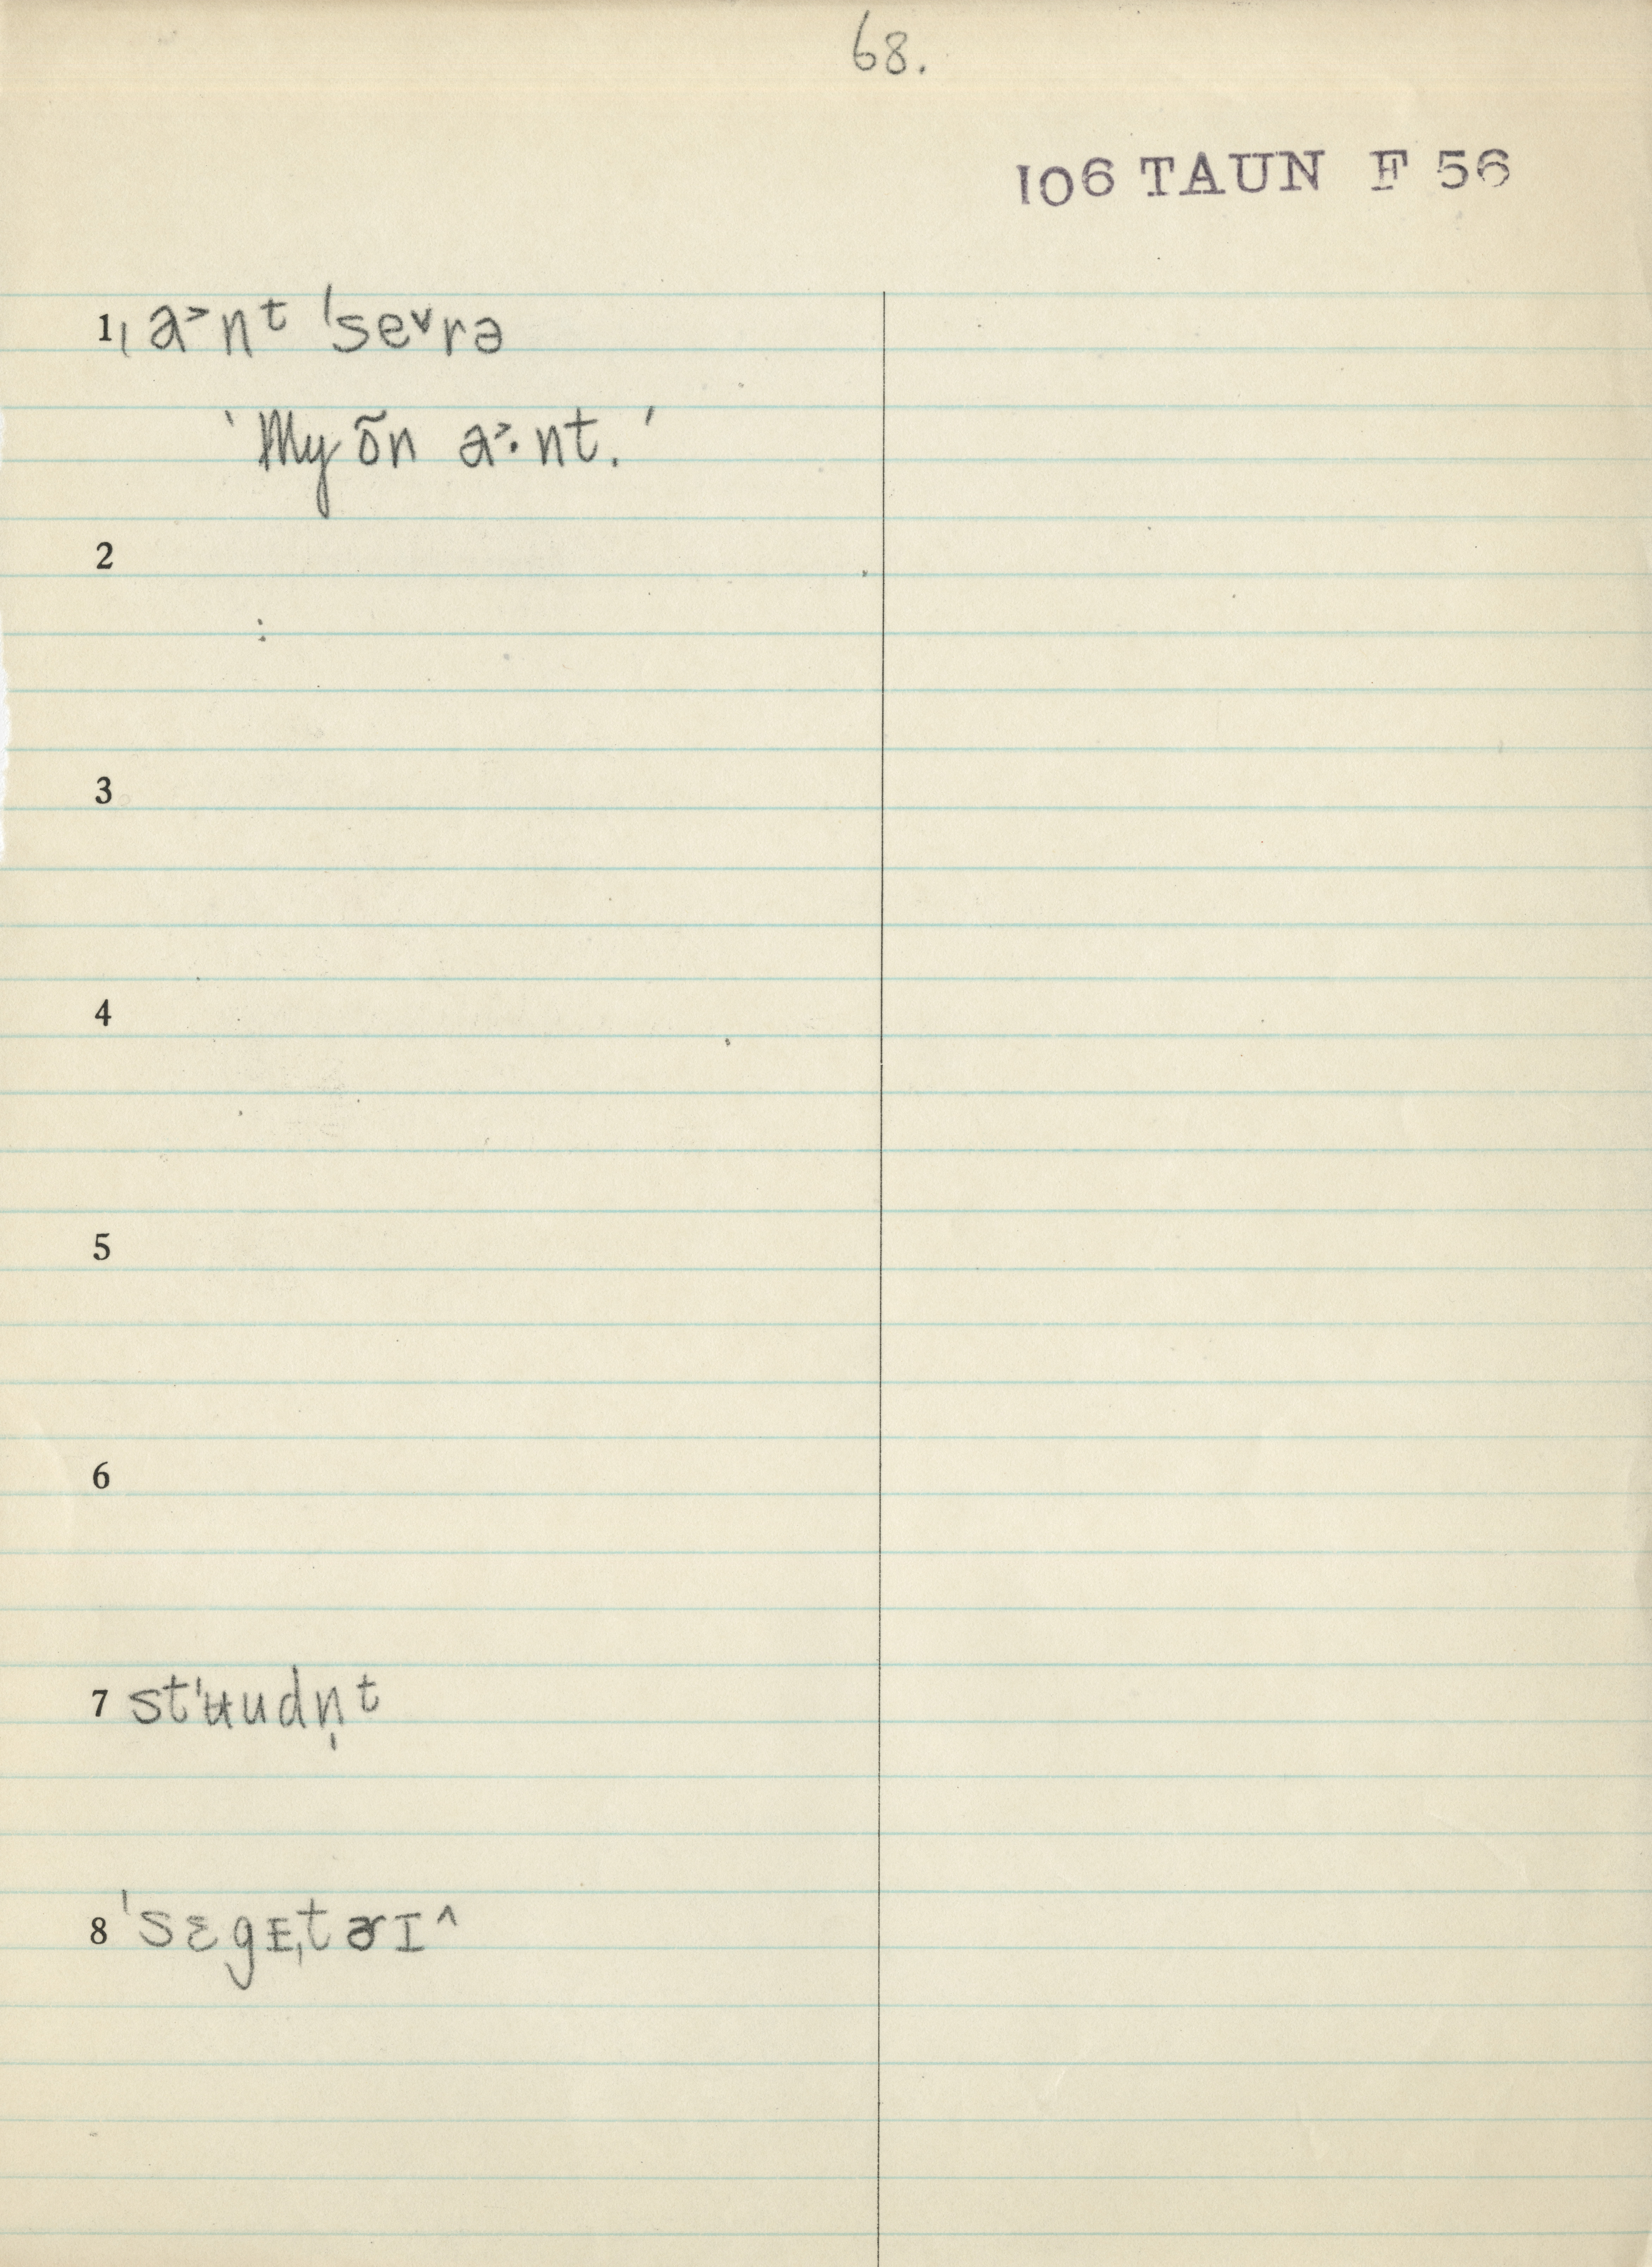 68.
106 TAUN F 56
1 ˌa˃nᵗ ˈse˅rə
‘My õn a˃·nt.’
2
3
4
5
6
7 stˈʉudn̩ᵗ
8 ˈsɛgᴇˌtɚɪ^